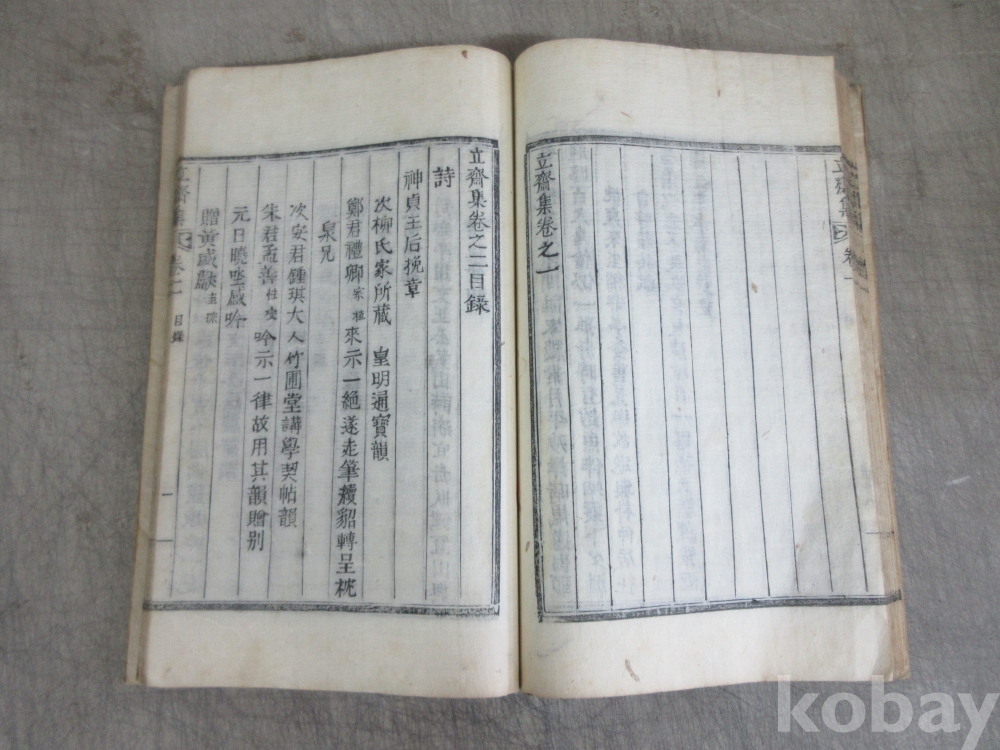 立齋集卷之一
立齋集
立齋集卷之二目錄
詩
神貞王后挽章
次柳氏家所藏 皇明通寶韻
鄭君禮卿來示一絶遂走筆續貂轉呈枕
泉兄
次安君鍾琪大人竹圃堂講學契帖韻
朱君孟善吟示一律故用其韻贈别
元日曉坐感吟
贈黃威獻
立齋集 卷二 目錄 一
kobay